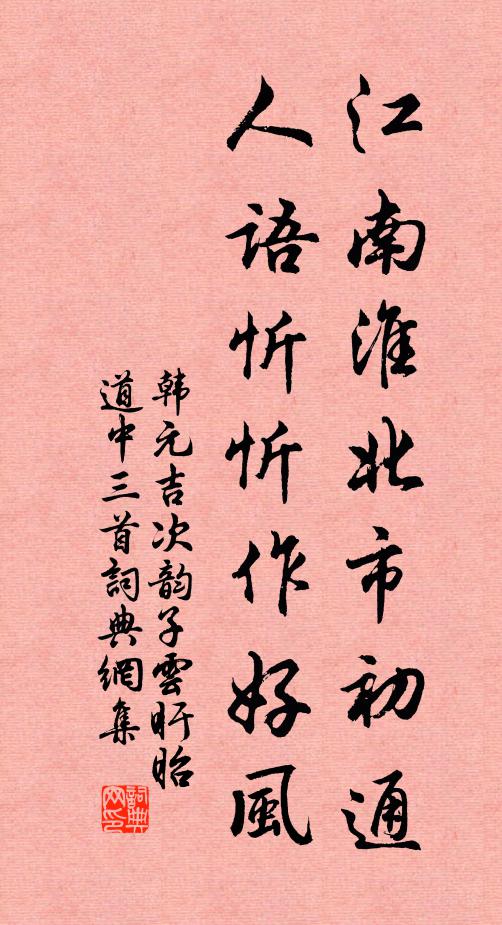 江南淮北市初通
人語忻忻作好風
韩元吉次韵子雲盱眙
道中三首詞典網集
詞典
网印